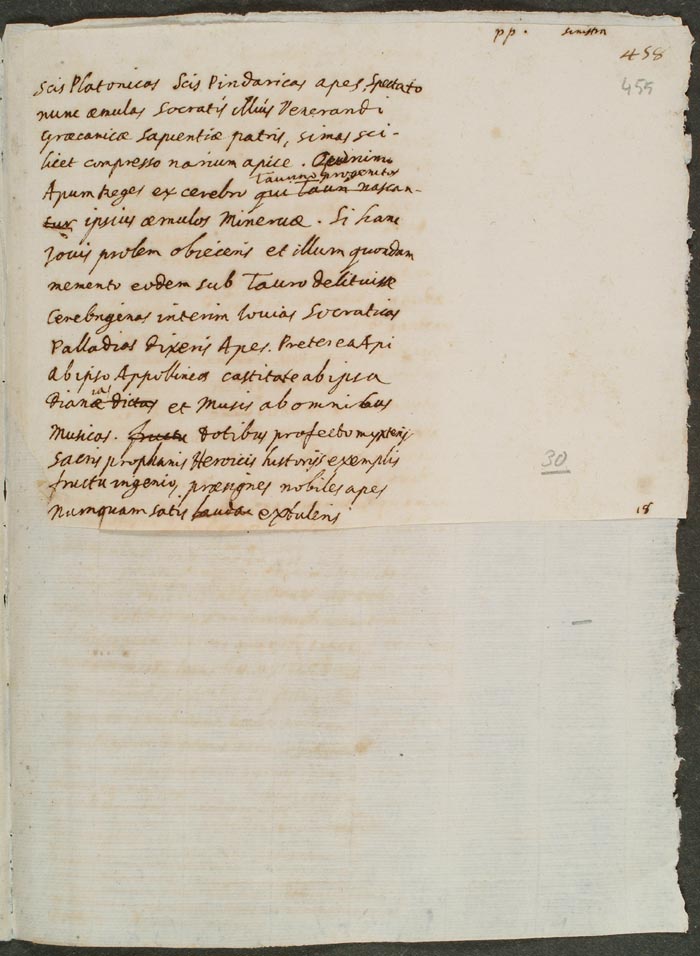 pp. sinistra
458
455
Scis Platonicas Scis Pindaricas apes, Spectato
nunc æmulas Socratis illius Venerandi
Græcanicæ Sapientiæ patris, simas sci-
licet compresso narium apice. Quinimo
Taurino progenitos
Apum Reges ex cerebro qui Tauri nascan-
tur ipsius æmulos Minervæ. Si hanc
Jovis prolem obieceris et illum quondam
memento eodem sub Tauro delituisse
Cerebrigenas interim Iovias Socraticas
Palladias dixeris Apes. Preterea Api
ab ipso Appollineas castitate ab ipsa
Dianæ dictas et Musis ab omnibus
Musicas. fructu Dotibus profecto mysterijs
Sacris prophanis Heroicis historijs exemplis
fructu ingenio, præsignes nobiles apes
Numquam satis laudae extuleris
30
18